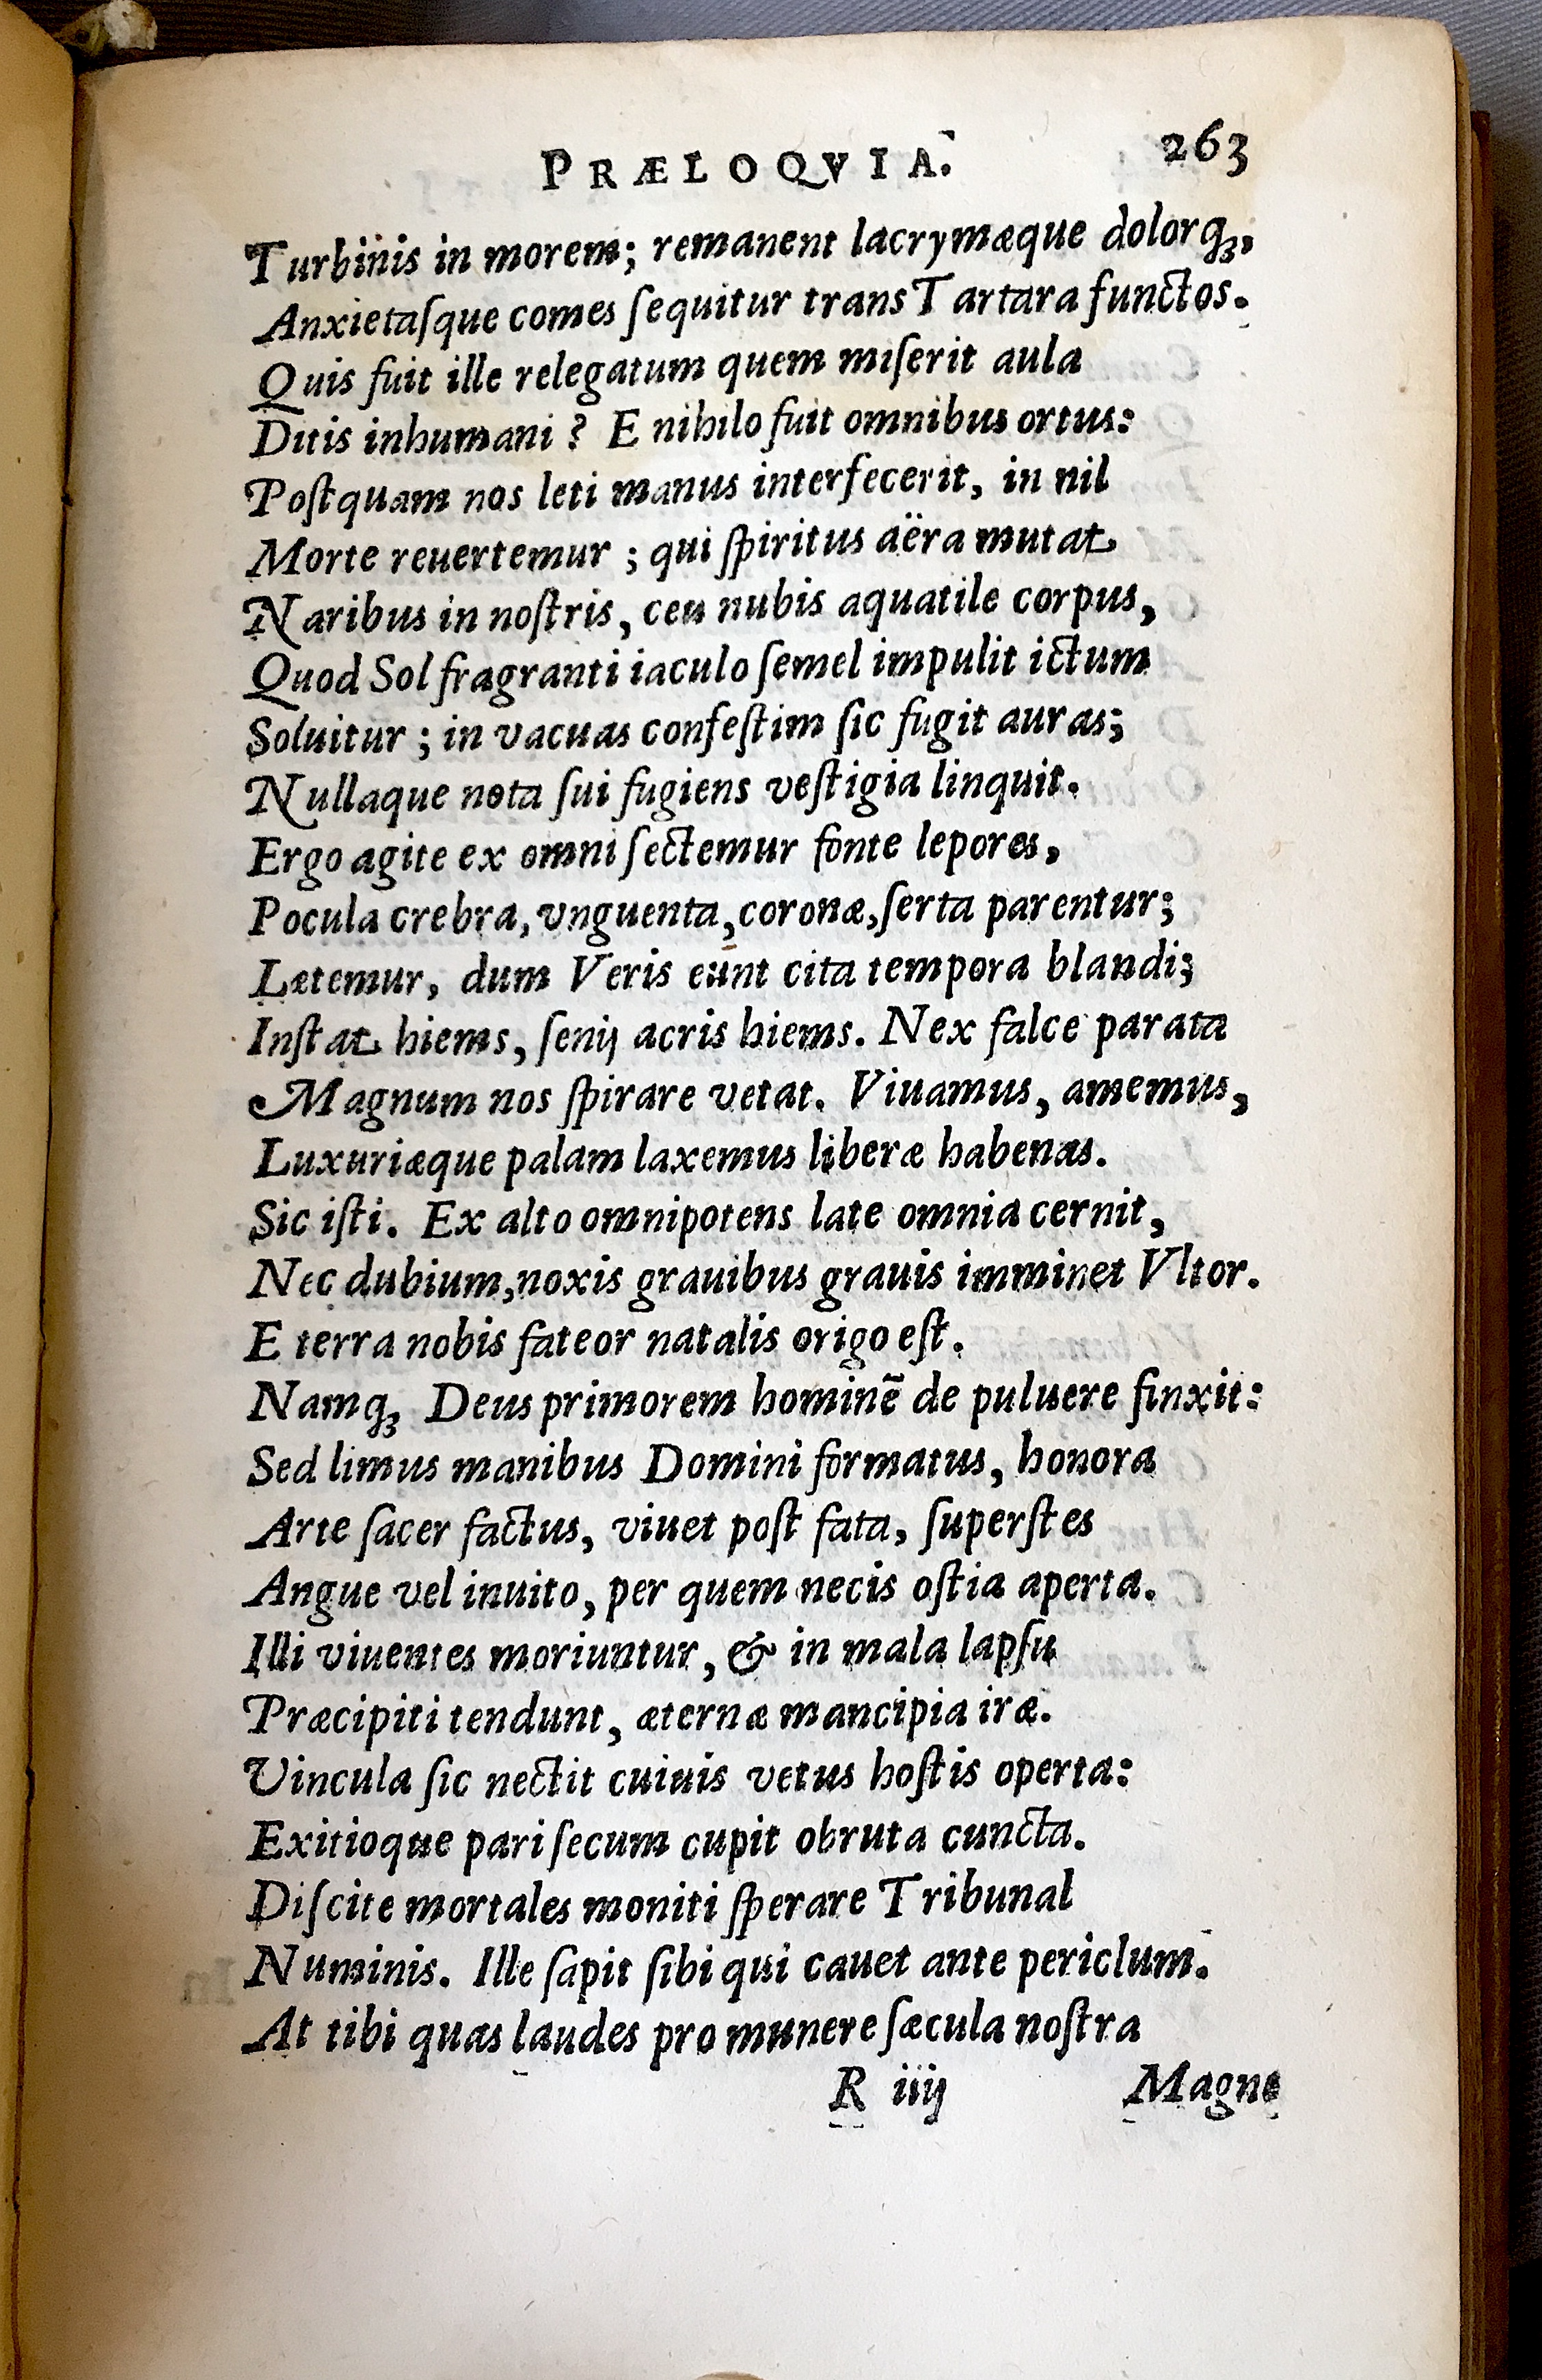 PRÆLOQVIA. 263
Turbinis in morem; remanent lacrymæque dolorq;,
Anxietaſque comes ſequitur trans Tartara functos.
Quis fuit ille relegatum quem miſerit aula
Ditis inhumani? E nihilo fuit omnibus ortus:
Poſtquam nos leti manus interfecerit, in nil
Morte reuertemur; qui ſpiritus aëra mutat
Naribus in noſtris, ceu nubis aquatile corpus,
Quod Sol fragranti iaculo ſemel impulit ictum
Soluitur; in vacuas confeſtim ſic fugit auras;
Nullaque nota ſui fugiens veſtigia linquit.
Ergo agite ex omni ſectemur fonte lepores,
Pocula crebra, vnguenta, coronæ, ſerta parentur;
Lætemur, dum Veris eunt cita tempora blandi;
Inſtat hiems, ſenij acris hiems. Nex falce parata
Magnum nos ſpirare vetat. Viuamus, amemus,
Luxuriæque palam laxemus liberæ habenas.
Sic iſti. Ex alto omnipotens late omnia cernit,
Nec dubium, noxis grauibus grauis imminet Vltor.
E terra nobis fateor natalis origo eſt.
Namq; Deus primorem hominẽ de puluere finxit:
Sed limus manibus Domini formatus, honora
Arte ſacer factus, viuet poſt fata, ſuperſtes
Angue vel inuito, per quem necis oſtia aperta.
Illi viuentes moriuntur, & in mala lapſu
Præcipiti tendunt, æternæ mancipia iræ.
Vincula ſic nectit cuiuis vetus hoſtis operta:
Exitioque pari ſecum cupit obruta cuncta.
Diſcite mortales moniti ſperare Tribunal
Numinis. Ille ſapit ſibi qui cauet ante periclum.
At tibi quas laudes pro munere ſæcula noſtra
R iiij Magne